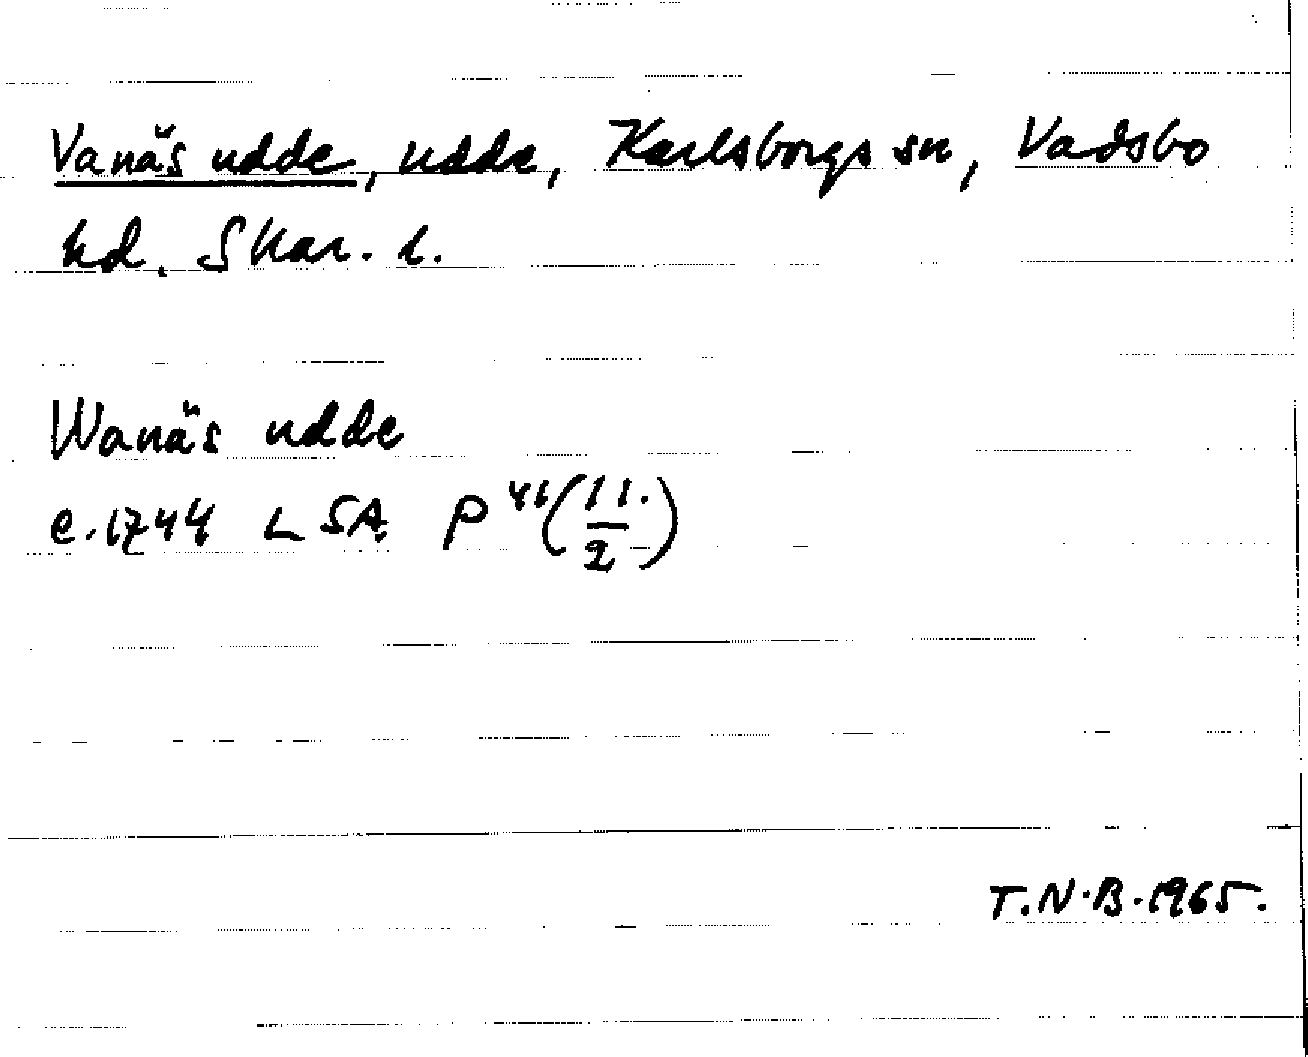 Vanäs udde, udde, Karlsborgs sn, Vadsbo
hd. Skar. l.
Wanäs udde
c. 1744 LSA P 41 (11./2)
T.N.B. 1965.